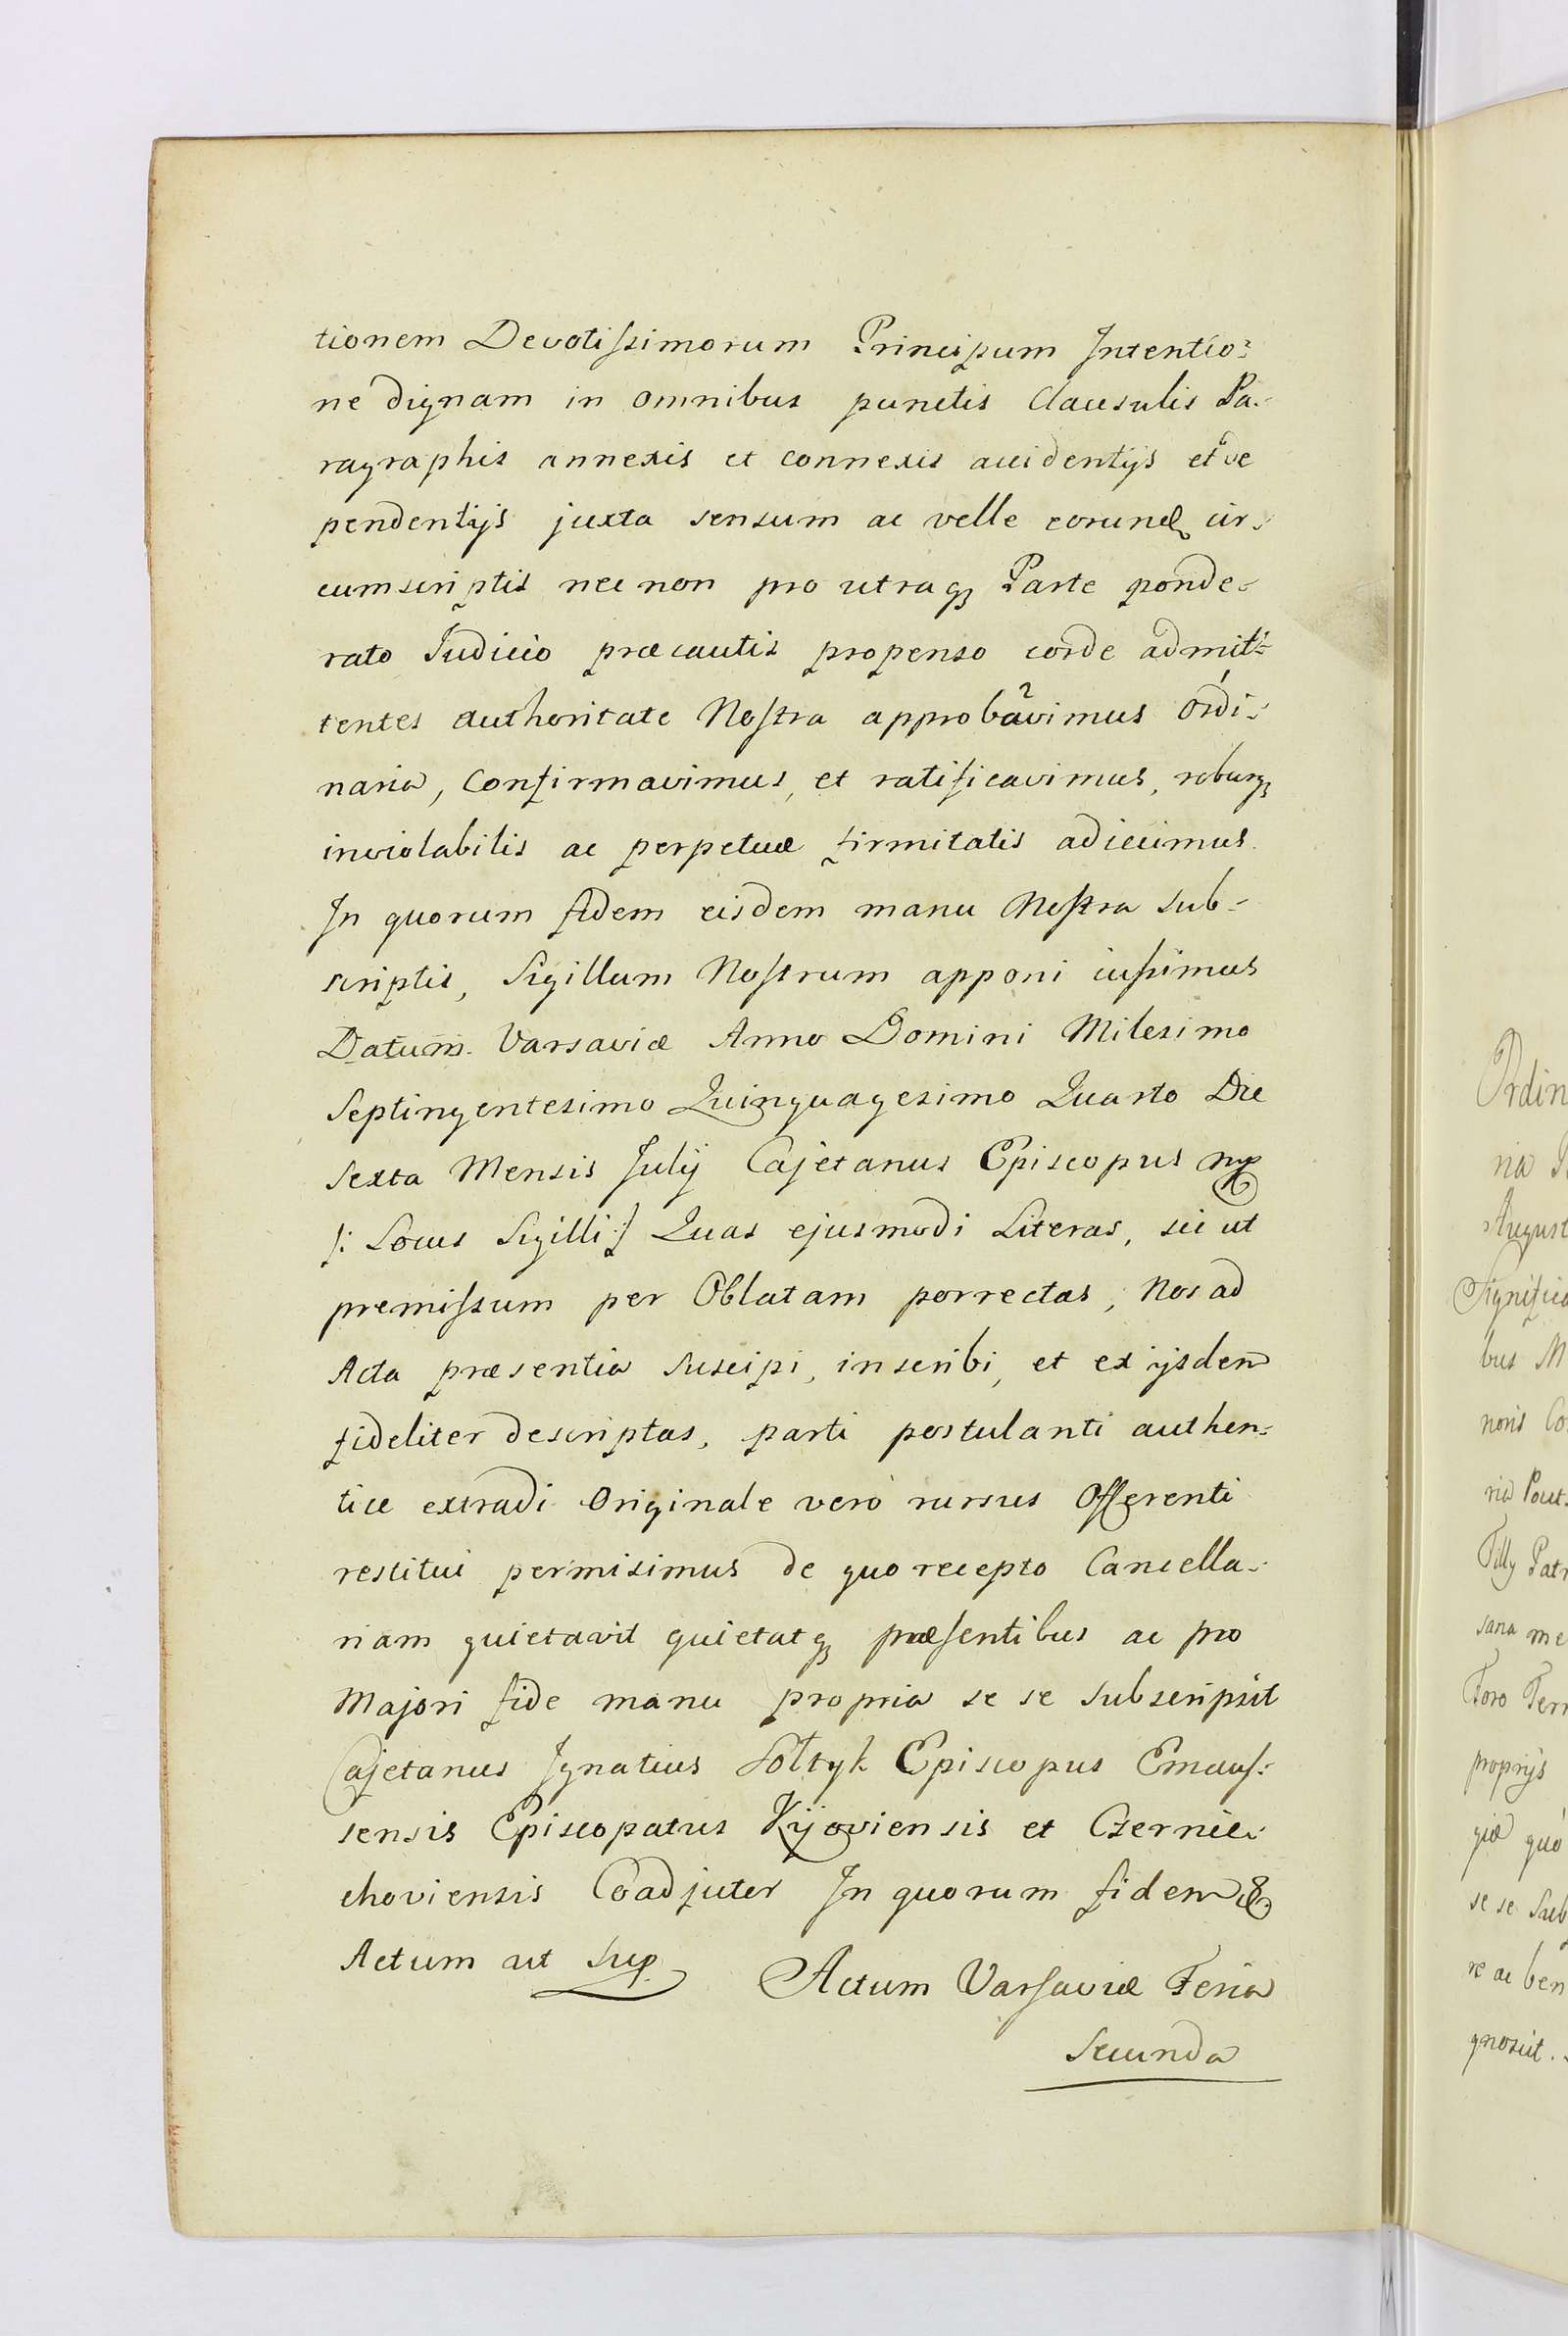 tionem Devotiſsimorum Principum Intentio:
ne dignam in omnibus punctis Clausulis Pa-
ragraphis annexis et connexis accidentijs et de
pendentijs juxta sensum ac velle eorund cir-
cumscriptis nec non pro utraq Parte ponde-
rato Judicio præcautis propenso corde admit-
tentes authoritate Noſtra approbavimus ordi-
naria, Confirmavimus, et ratificavimus, roburq
inviolabilis ac perpetuæ firmitatis adiecimus.
In quorum fidem eisdem manu Noſtra sub-
scriptis, Sigillum Noſtrum apponi iuſsimus
Datum. Varsaviæ Anno Domini Milesimo
Septingentesimo Quinquagesimo Quarto Die
Sexta Mensis Julij Cajetanus Episcopus mp
/: Locus Sigilli :/ Quas ejusmodi Literas, sic ut
premiſsum per Oblatam porrectas, Nos ad
Acta præsentia Suscipi, inscribi, et ex ijsdem
fideliter descriptas, parti postulanti authen-
tice extradi Originale verò rursus Offerenti
restitui permisimus de quo recepto Cancella-
riam quietavit quietatq præſentibus ac pro
Majori fide manu propria se se Subscripsit
Cajetanus Ignatius Sołtyk Episcopus Emauſ-
sensis Episcopatus Kijoviensis et Czernie-
choviensis Coadjutor In quorum fidem &
Actum ut Sup.
Actum Varſaviæ Feria
Secunda
Ordin
ria
August
Significa
bus M
noris Co
ria Pout
Tilly Patr
sana me
Foro Terr
proprijs
giæ quo
se se Sub
re ac ben
gnovit.